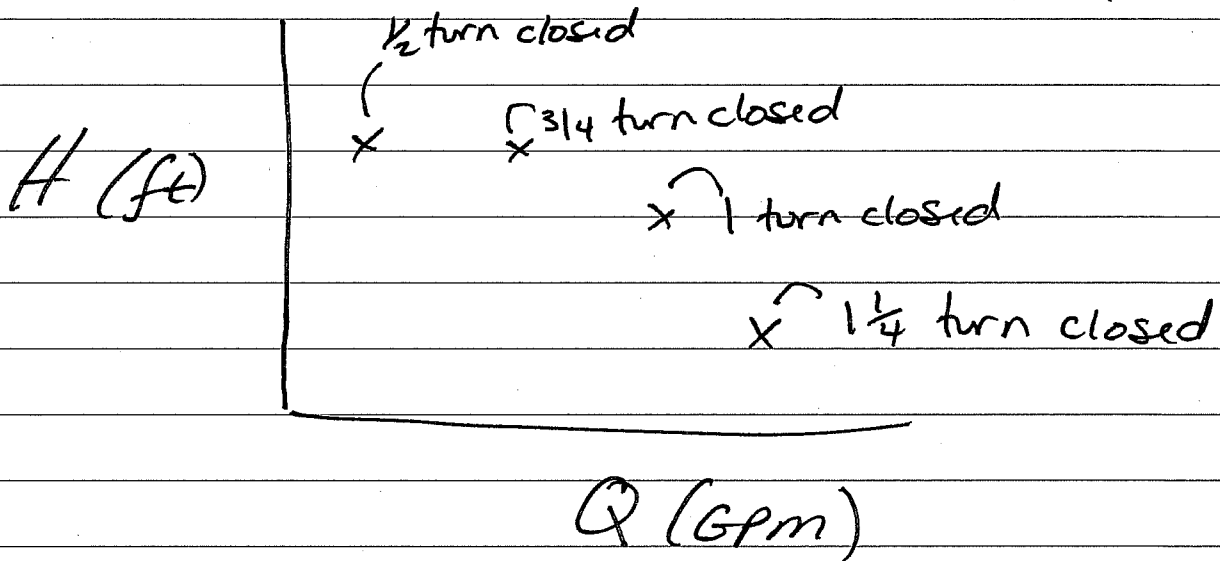 1/2 turn closed
3/4 turn closed
H (ft)
1 turn closed
1 1/4 turn closed
Q (GPM)